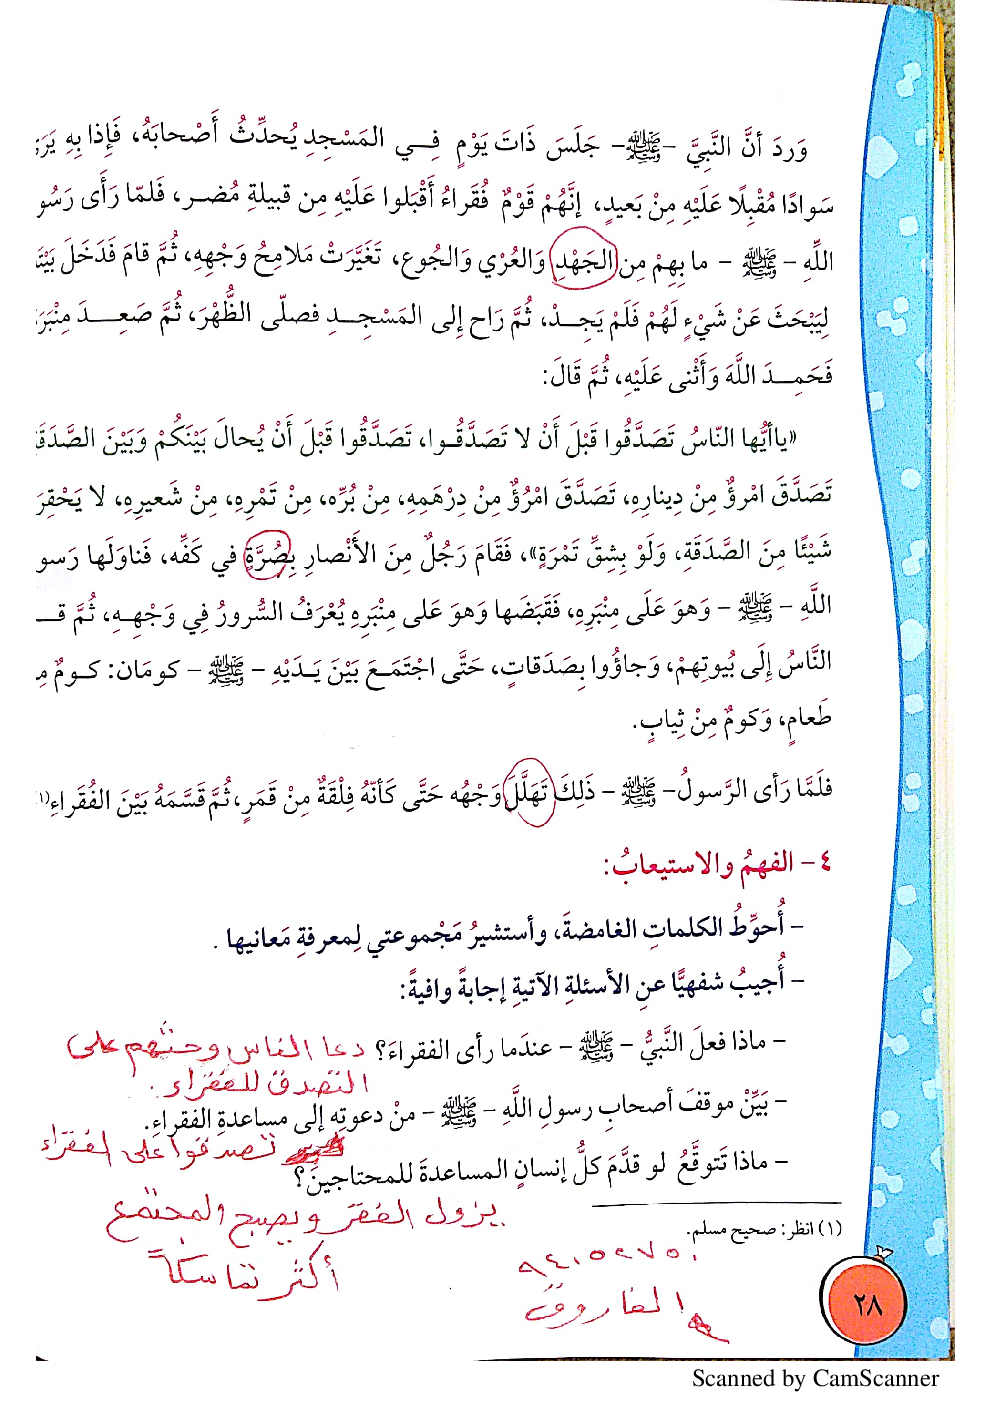 وَرَدَ أنَّ النَّبِيَّ -ﷺ- جَلَسَ ذَاتَ يَوْمٍ فِي المَسْجِدِ يُحدِّثُ أَصْحابَهُ، فَإِذا بِهِ يَرَى
سَوادًا مُقْبِلًا عَلَيْهِ مِنْ بَعيدٍ، إِنَّهُمْ قَوْمٌ فُقَراءُ أَقْبَلوا عَلَيْهِ مِن قبيلةِ مُضر، فَلمّا رَأَى رَسُو
اللهِ - ﷺ - ما بِهِمْ مِن الجَهْدِ وَالعُرْي وَالجُوع، تَغَيَّرَتْ مَلامِحُ وَجْهِهِ، ثُمَّ قامَ فَدَخَلَ بَيْتَ
لِيَبْحَثَ عَنْ شَيْءٍ لَهُمْ فَلَمْ يَجِدْ، ثُمَّ رَاح إلى المَسْجِدِ فصلّى الظُّهْرَ، ثُمَّ صَعِدَ مِنْبَرَ
فَحَمِدَ اللَّهَ وَأَثْنى عَلَيْهِ، ثُمَّ قَالَ:
«ياأَيُّها النّاسُ تَصَدَّقُوا قَبْلَ أَنْ لا تَصَدَّقُوا، تَصَدَّقُوا قَبْلَ أَنْ يُحالَ بَيْنَكُمْ وَبَيْنَ الصَّدَقَ
تَصَدَّقَ امْرؤٌ مِنْ دِينارِهِ، تَصَدَّقَ امْرُؤٌ مِنْ دِرْهَمِهِ، مِنْ بُرِّه، مِنْ تَمْرِهِ، مِنْ شَعيرِهِ، لا يَحْقِرَ
شَيْئًا مِنَ الصَّدَقَةِ، وَلَوْ بِشِقِّ تَمْرَةٍ»، فَقَامَ رَجُلٌ مِنَ الأَنْصارِ بِصُرَّةٍ في كَفِّه، فَناوَلَها رَسو
اللَّهِ - ﷺ - وَهوَ عَلَى مِنْبَرِهِ، فَقَبَضَها وَهوَ عَلى مِنْبَرِهِ يُعْرَفُ السُّرورُ فِي وَجْهِهِ، ثُمَّ قـ
النَّاسُ إِلَى بُيوتِهِمْ، وَجاؤُوا بِصَدَقاتٍ، حَتَّى اجْتَمَعَ بَيْنَ يَدَيْهِ - ﷺ - كومَان: كومٌ مِ
طَعامٍ، وَكومٌ مِنْ ثِيابٍ.
فلَمَّا رَأى الرَّسولُ- ﷺ - ذَلِكَ تَهَلَّلَ وَجْهُه حَتَّى كَأَنَّهُ فِلْقَةٌ مِنْ قمَرٍ، ثُمَّ قَسَّمَهُ بَيْنَ الفُقَراءِ(١
٤ - الفهمُ والاستيعابُ:
- أُحوِّطُ الكلماتِ الغامضةَ، وأستشيرُ مَجْموعتي لِمعرفةِ مَعانيها .
- أُجيبُ شفهيًّا عنِ الأسئلةِ الآتيةِ إجابةً وافيةً:
- ماذا فعلَ النَّبيُّ - ﷺ - عندَما رأى الفقراءَ؟ دعا الناس وحثهم على
التصدق للفقراء .
- بَيِّنْ موقفَ أصحابِ رسولِ اللَّهِ - ﷺ - منْ دعوتِهِ إلى مساعدةِ الفقراءِ.
تصدقوا على الفقراء
- ماذا تَتوقَّعُ لو قدَّمَ كلُّ إنسانٍ المساعدةَ للمحتاجينَ؟
يزول الفقر ويصبح المجتمع
أكثر تماسكاً
(١) انظر: صحيح مسلم.
٩٤٠٥٢٧٥٠
الفاروق
٢٨
Scanned by CamScanner